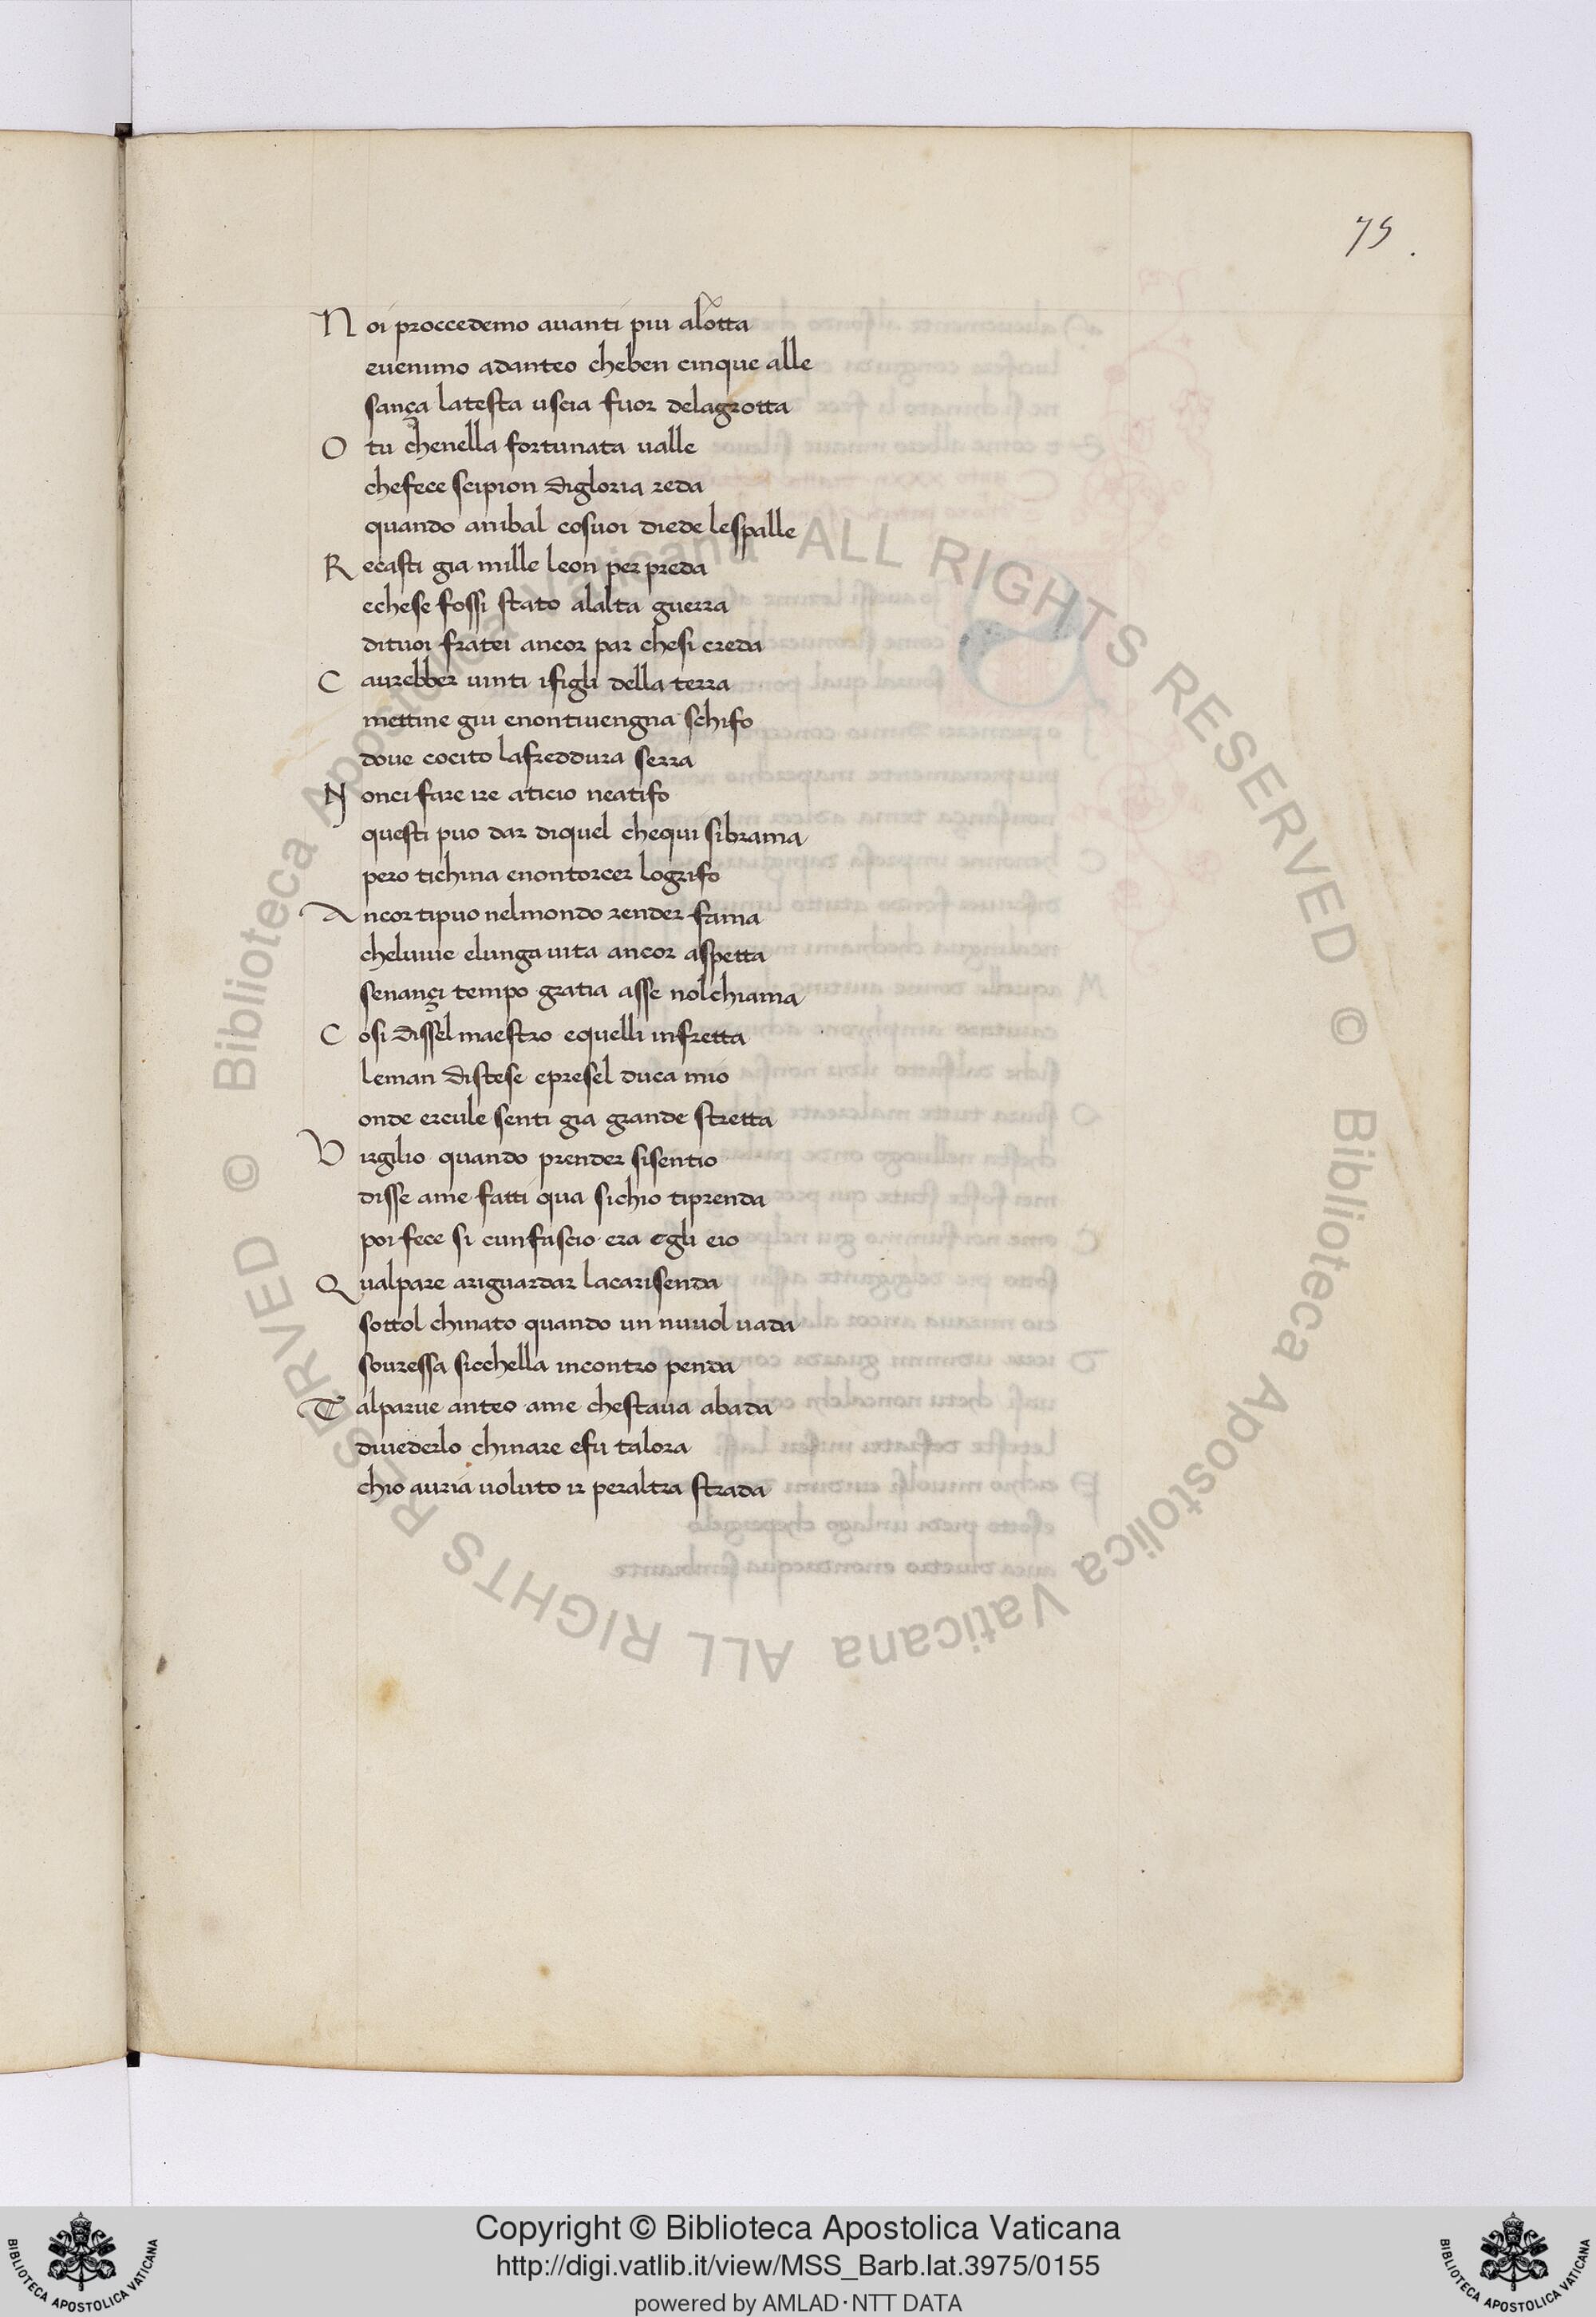 75
Noi proccedemo auanti piu alotta
euenimo adanteo cheben cinque alle
sança latesta uscia fuor delagrotta
O tu chenella fortunata ualle
chefece scipion digloria reda
quando anibal cosuoi diede lespalle
Recasti gia mille leon per preda
echese fossi stato alalta guerra
dituoi fratei ancor par chesi creda
Caurebber uinti ifigli della terra
mettine giu enontiuengna schifo
doue cocito lafreddura serra
Nonci fare ire aticio neatifo
questi puo dar diquel chequi sibrama
pero tichina enontorcer logrifo
Ancor tipuo nelmondo render fama
cheluiue elunga uita ancor aspetta
senançi tempo gratia asse nolchiama
Cosi dissel maestro equelli infretta
leman distese epresel duca mio
onde ercule senti gia grande stretta
Virgilio quando prender sisentio
disse ame fatti qua sichio tiprenda
poi fece si cunfascio era egli eio
Qualpare ariguardar lacarisenda
sottol chinato quando un nuuol uada
souressa sicchella incontro penda
Talparue anteo ame chestaua abada
diuederlo chinare efu talora
chio auria uoluto ir peraltra strada
© Biblioteca Apostolica Vaticana ALL RIGHTS RESERVED
© Biblioteca Apostolica Vaticana ALL RIGHTS RESERVED
Copyright © Biblioteca Apostolica Vaticana
http://digi.vatlib.it/view/MSS_Barb.lat.3975/0155
powered by AMLAD·NTT DATA
BIBLIOTECA APOSTOLICA VATICANA
BIBLIOTECA APOSTOLICA VATICANA